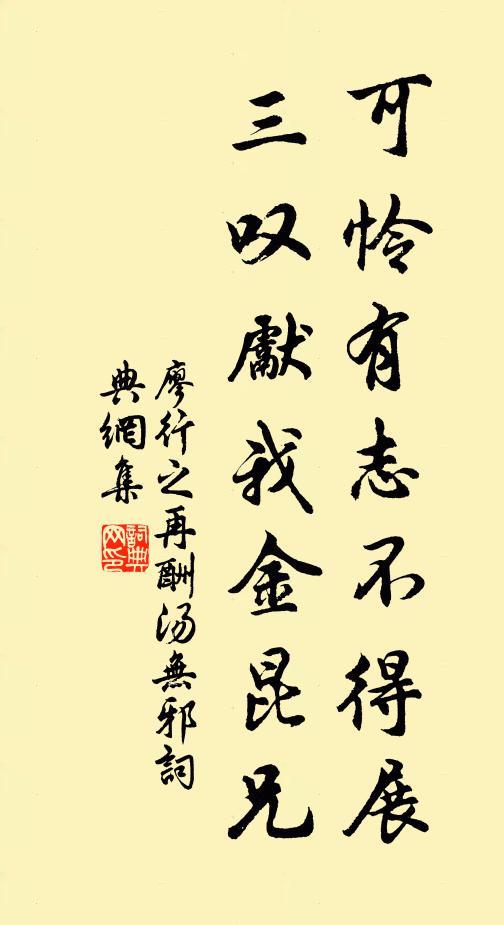 可怜有志不得展
三叹献我金昆兄
廖行之再酬汤無邪詞
典網集
詞典網印